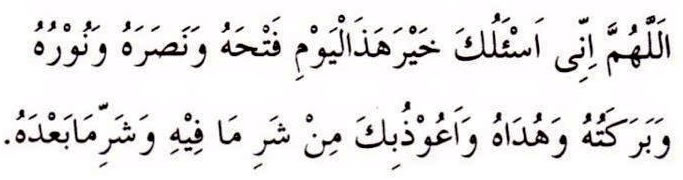 اَللّٰهُمَّ اِنِّى اَسْئَلُكَ خَيْرَهَذَالْيَوْمِ فَتْحَهُ وَنَصَرَهُ وَنُوْرُهُ
وَبَرَكَتُهُ وَهُدَاهُ وَاَعُوْذُبِكَ مِنْ شَرِ مَا فِيْهِ وَشَرِّمَابَعْدَهُ.